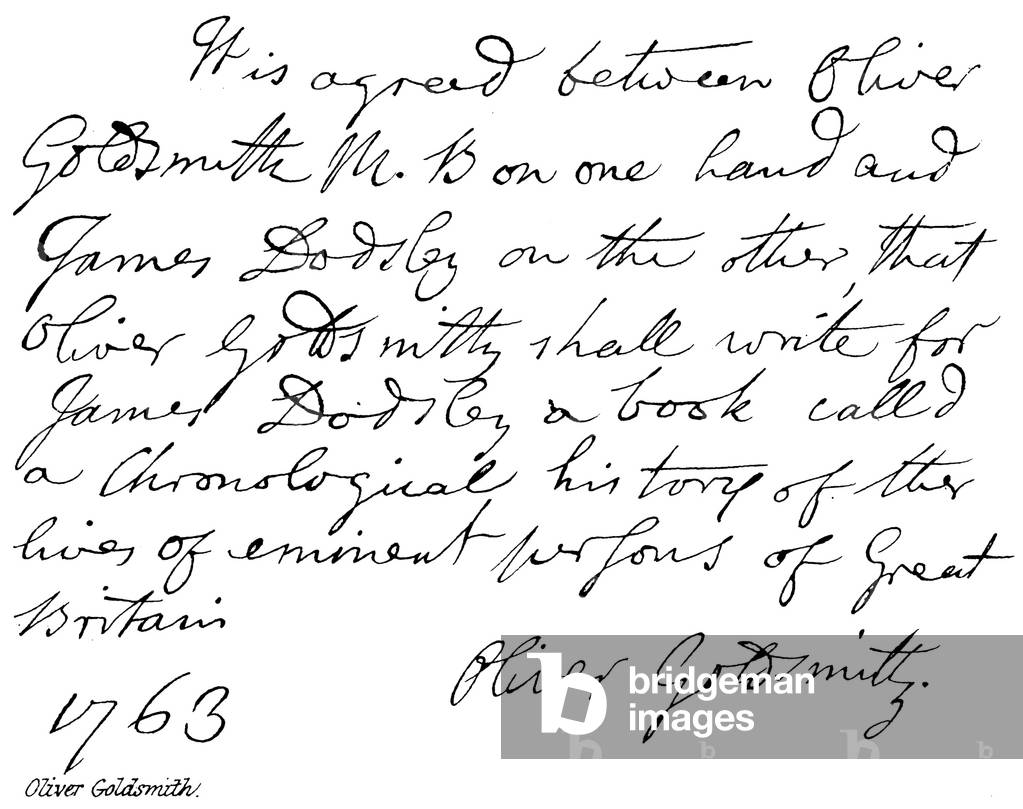 It is agreed between Oliver
Goldsmith M. B on one hand and
James Dodsley on the other, that
Oliver Goldsmith shall write for
James Dodsley a book called
a Chronological history of the
lives of eminent persons of Great
Britain
Oliver Goldsmith.
1763
Oliver Goldsmith.
bridgeman
images